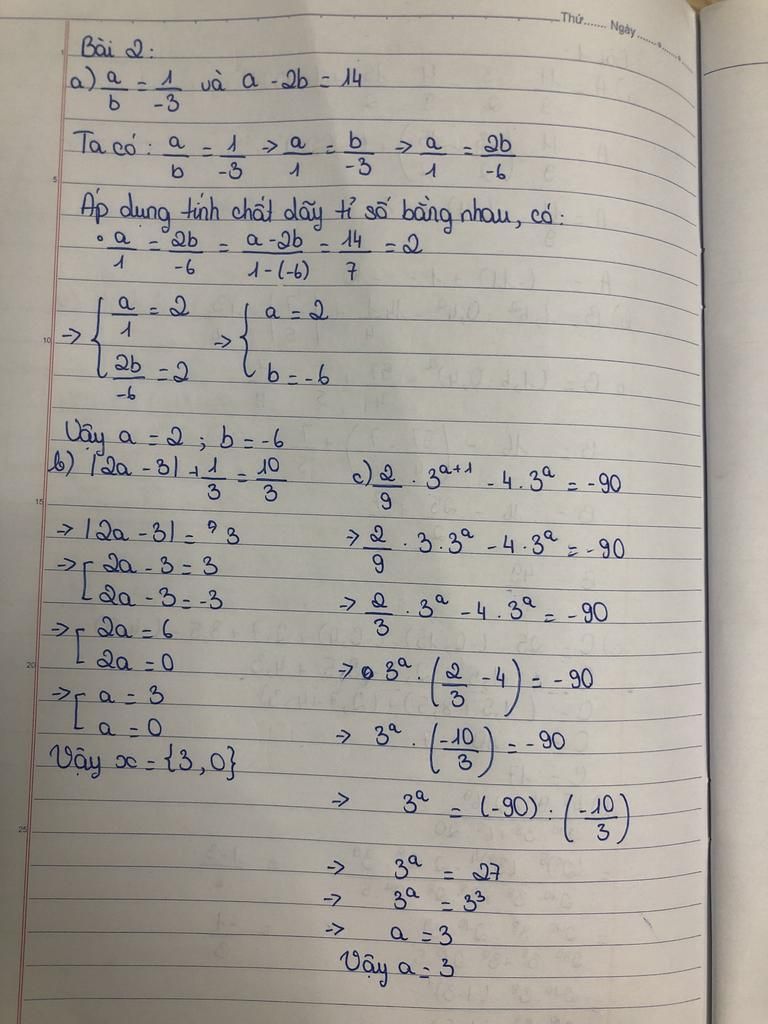 Thứ....... Ngày.............
Bài 2:
a) a/b = 1/-3 và a - 2b = 14
Ta có: a/b = 1/-3 → a/1 = b/-3 → a/1 = 2b/-6
Áp dụng tính chất dãy tỉ số bằng nhau, có:
a/1 = 2b/-6 = a-2b/1-(-6) = 14/7 = 2
→ { a/1 = 2 → { a = 2
2b/-6 = 2 b = -6
Vậy a = 2 ; b = -6
b) |2a - 3| + 1/3 = 10/3
→ |2a - 3| = 3
→ [ 2a - 3 = 3
2a - 3 = -3
→ [ 2a = 6
2a = 0
→ [ a = 3
a = 0
Vậy x = {3, 0}
c) 2/9 . 3^{a+1} - 4 . 3^a = -90
→ 2/9 . 3 . 3^a - 4 . 3^a = -90
→ 2/3 . 3^a - 4 . 3^a = -90
→ 3^a . (2/3 - 4) = -90
→ 3^a . (-10/3) = -90
→ 3^a = (-90) : (-10/3)
→ 3^a = 27
→ 3^a = 3^3
→ a = 3
Vậy a = 3
5
10
15
20
25